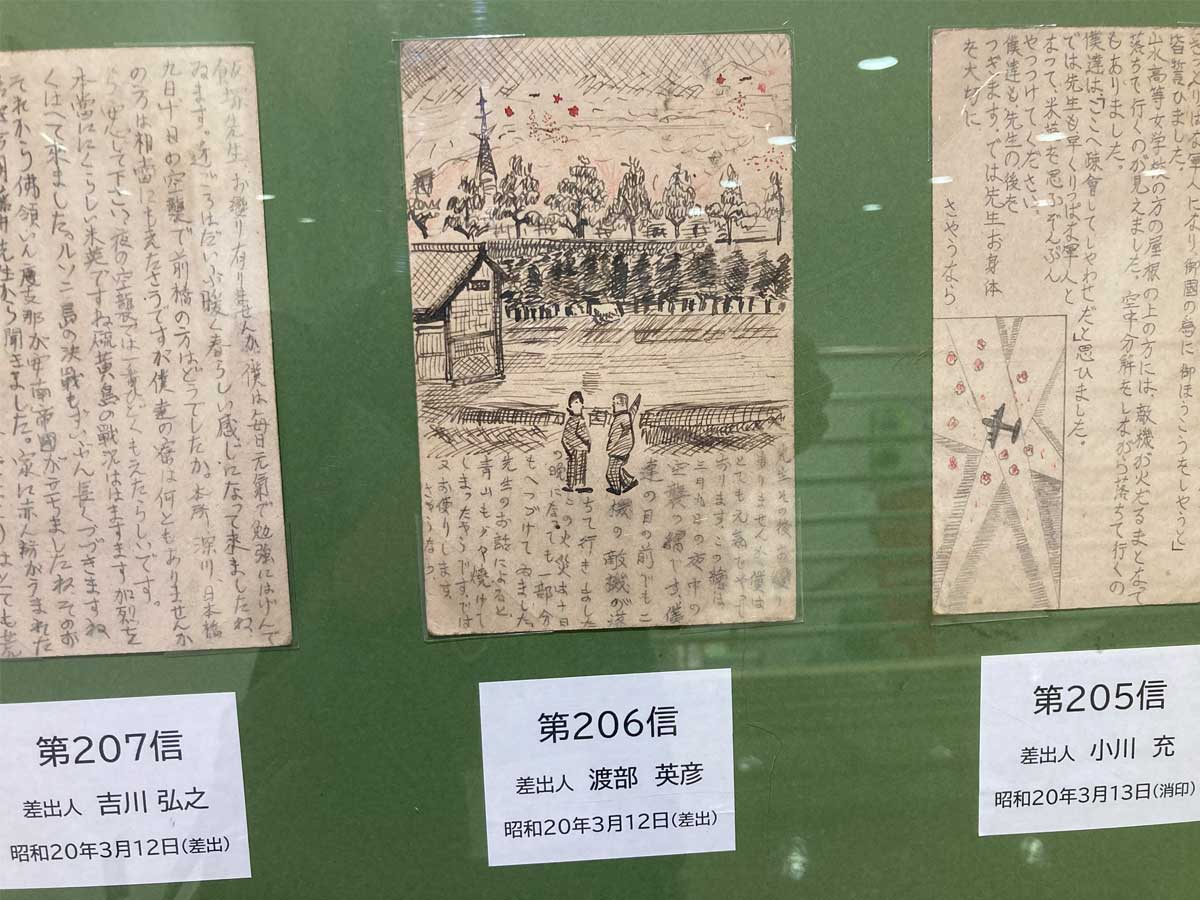 りっぱな軍人になり 御國の為に 御ほうこうをしやうと」
皆誓ひました。
山水高等女学校の方の屋根の上の方には、敵機が火だるまとなって
落ちて行くのが見えました。空中分解をしながら落ちて行くの
もありました。
僕達は「ここへ疎會してしやわせだ」と思ひました。
では先生も早くりっぱな軍人と
なって、米英を思ふぞんぶん
やっつけてください。
僕達も先生の後を
つぎます。では先生お身体
を大切に
さやうなら
第205信
差出人 小川 充
昭和20年3月13日(消印)
先生その後お変り
ありませんか僕は
とても元気でやって
おります。この繪は
三月九日の夜中の
空襲の繪です。僕
達の目の前でもこ
機の敵機が落
ちて行きました
の晩の火災は十日
に居ても一部分
もへつづけて
先生のお話によると
青山も少々焼けて
しまったさうです。では
又お便りします。
さやうなら
第206信
差出人 渡部 英彦
昭和20年3月12日(差出)
先生 お変り有りませんか。僕は毎日元氣で勉強にはげんで
ゐます。近ごろはだいぶ暖く春らしい感じになって来ましたね、
九日十日の空襲で前橋の方はどうでしたか。本所、深川、日本橋
の方は相當にもえたさうですが僕達の宿は何ともありませんか
安心して下さい。夜の空襲では一番ひどくもえたらしいです。
本當ににくらしい米英ですね硫黄島の戰況はますます加烈を
くはへて来ました。ルソン島の決戰もずいぶん長くつづきますね、
それから佛領いんど支那が安南帝國が立ちましたね そのお
先生から聞きました。家に赤ん坊がうまれた
第207信
差出人 吉川 弘之
昭和20年3月12日(差出)